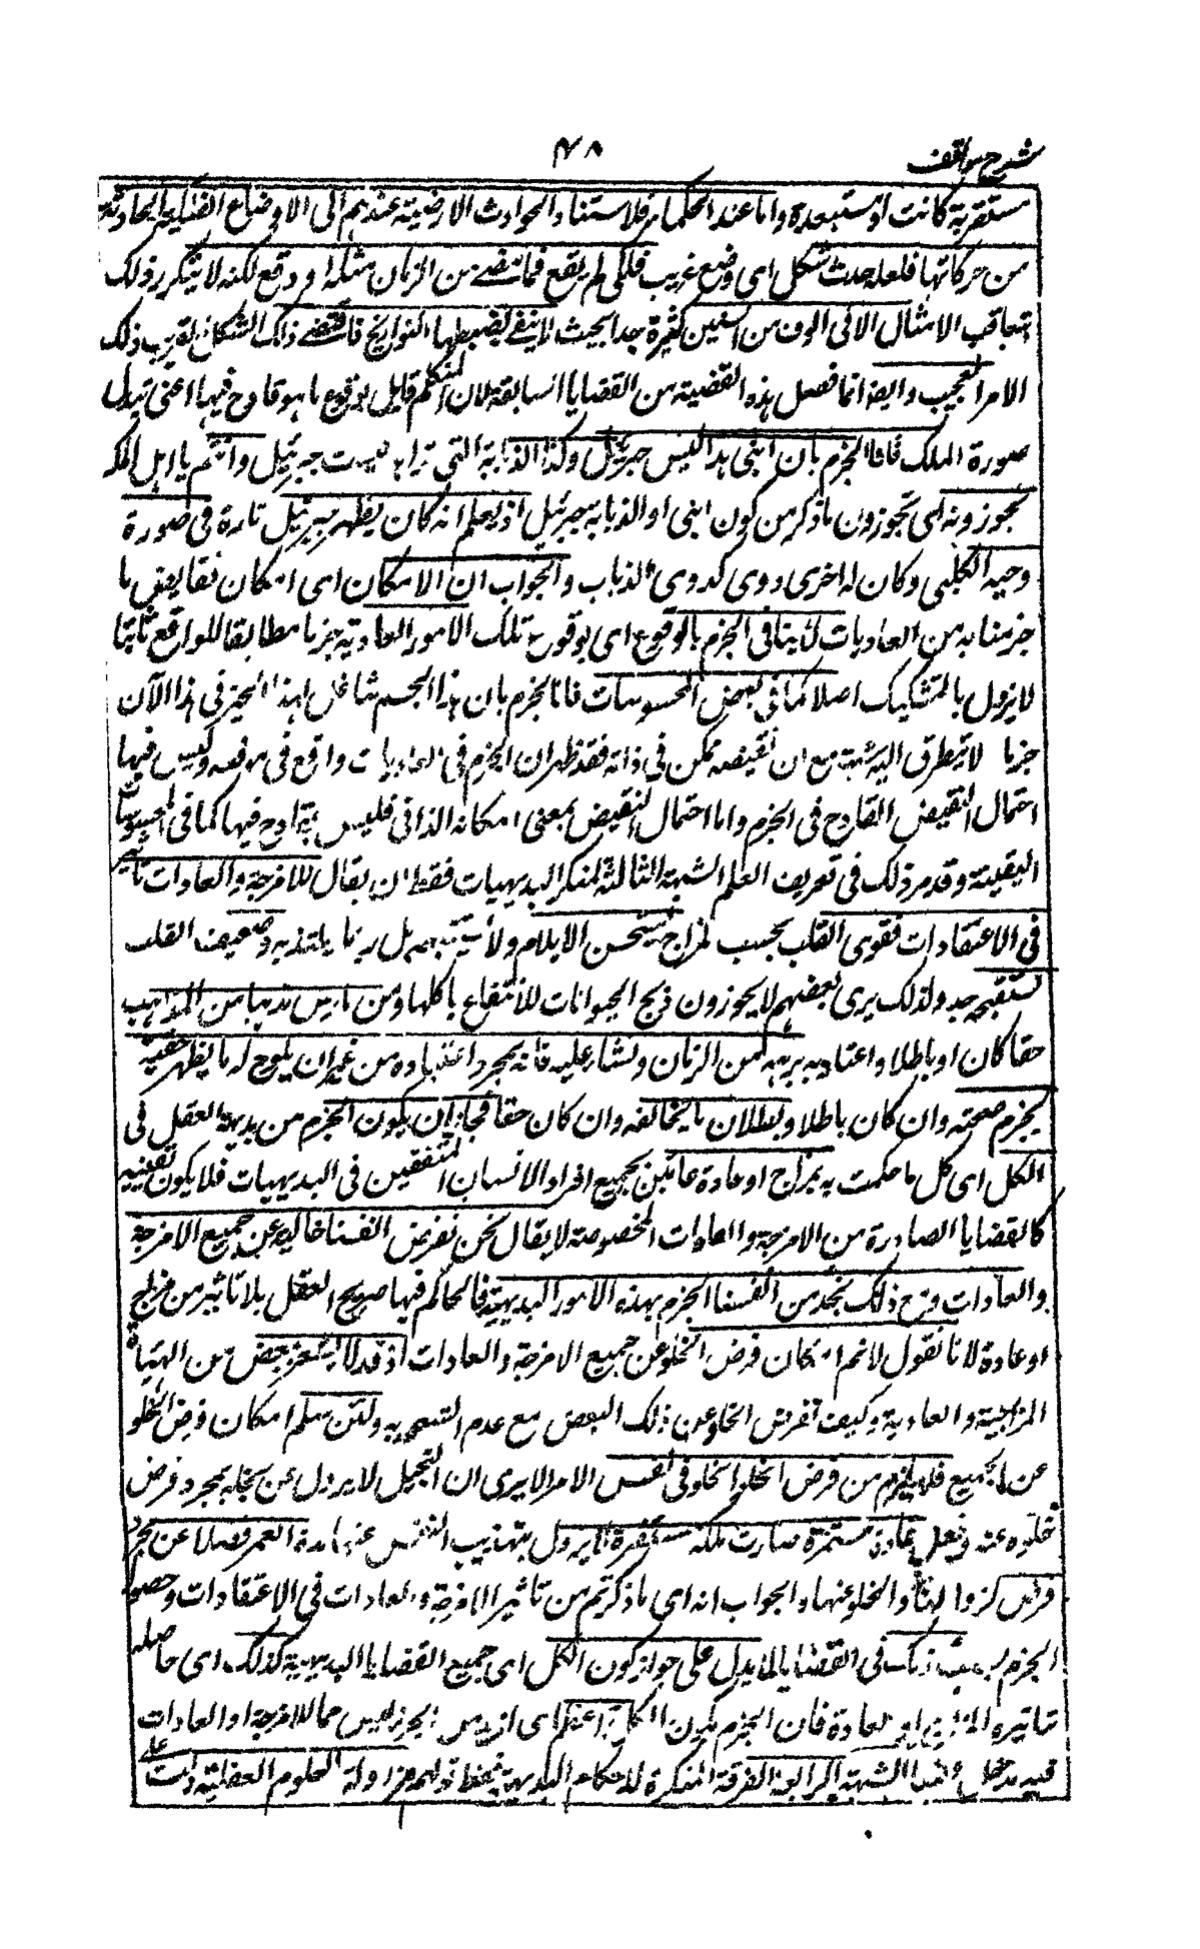 شرح مواقف
۴۸
مستقربة كانت او مستبعدة واما عند الحكماء فلاستناد الحوادث الارضية عندهم الى الاوضاع الفلكية الحادثة
من حركاتها فلعله حدث شكل اى وضع غريب فلكى لم يقع فيما مضى من الزمان مثله او وقع لكنه لا يتكرر ذلك
تعاقب الامثال الا فى الوف من السنين كثيرة جدا بحيث لا يفى بضبطها التواريخ فاقتضى ذلك الشكل الغريب ذلك
الامر العجيب وايضا انما فصل هذه القضية من القضايا السابقة لان المتكلم قايل بوقوع ما هو قادح فيها اعنى تبدل
صورة الملك فانا الجزم بان ابنى هذا ليس جبرئيل وكذا الذبابة التى تراها ليست جبرئيل وانتم يا اهل الملة
تجوزونه اى تجوزون ما ذكر من كون ابنى او الذبابة جبرئيل اذ يعلم انه كان يظهر جبرئيل تارة فى صورة
دحية الكلبى وكان له اخرى دوى كدوى الذباب والجواب ان الامكان اى امكان نقايض ما
جزمنا به من العاديات لا ينافى الجزم بالوقوع اى بوقوع تلك الامور العادية جزما مطابقا للواقع ثابتا
لا يزول بالتشكيك اصلا كما فى بعض المحسوسات فانا نجزم بان هذا الجسم شاغل لهذا الحيز فى هذا الآن
جزما لا يتطرق اليه شبهة مع ان نقيضه ممكن فى ذاته فقد ظهر ان الجزم فى العاديات واقع فى موقعه وليس فيها
احتمال النقيض القادح فى الجزم واما احتمال النقيض بمعنى امكانه الذاتى فليس بقادح فيها كما فى المحسوسات
اليقينية وقد مر ذلك فى تعريف العلم الشبهة الثالثة لمنكر البديهيات فقط ان يقال للامزجة والعادات تاثير
فى الاعتقادات فقوى القلب بحسب المزاج يستحسن الايلام ولا يستقبحه بل ربما يلتذ به وضعيف القلب
يستقبحه جدا ولذلك يرى بعضهم لا يجوزون ذبح الحيوانات للانتفاع باكلها ومن مارس مذهبا من المذاهب
حقا كان او باطلا واعتاد به برهة من الزمان ونشأ عليه فانه بمجرد اعتياده من غير ان يلوح له ما يظهر حقيته
يجزم صحته وان كان باطلا وبطلان ما يخالفه وان كان حقا فجاز ان يكون الجزم من بديهة العقل فى
الكل اى كل ما حكمت به لمزاج او عادة عامين لجميع افراد الانسان المتفقين فى البديهيات فلا يكون يقينية
كالقضايا الصادرة من الامزجة والعادات المخصوصة لا يقال نحن نفرض انفسنا خالية عن جميع الامزجة
والعادات ومع ذلك نجد من انفسنا الجزم بهذه الامور البديهية فالحاكم فيها صريح العقل بلا تاثير من مزاج
او عادة لانا نقول لا نم امكان فرض الخلو عن جميع الامزجة والعادات اذ قد لا يشعر ببعض من الهيئات
المزاجية والعادية وكيف نفرض الخلو عن ذلك البعض مع عدم الشعور به ولئن سلم امكان فرض الخلو
عن الجميع فلا يلزم من فرض الخلو الخلو فى نفس الامر الا يرى ان البخيل لا يزول عن بخله بمجرد فرض
خلوه عنه ولعل عادة مستمرة صارت ملكة مستقرة لا يزول بتهذيب النفس عنها مدة العمر فضلا عن مجرد
فرض الخلو عنها والجواب انه اى ما ذكرتم من تاثير الامزجة والعادات فى الاعتقادات وحصول
الجزم بسبب ذلك فى القضايا لا يدل على جواز كون الكل اى جميع القضايا البديهية كذلك اى حاصلة
بتاثير المزاج او العادة فان الجزم بكون الكل اعظم اى ازيد من الجزء ليس مما للامزجة او العادات
فيه مدخل الشبهة الرابعة للفرقة المنكرة للاحكام البديهية فقط قولهم مزاولة العلوم العقلية دلت
على